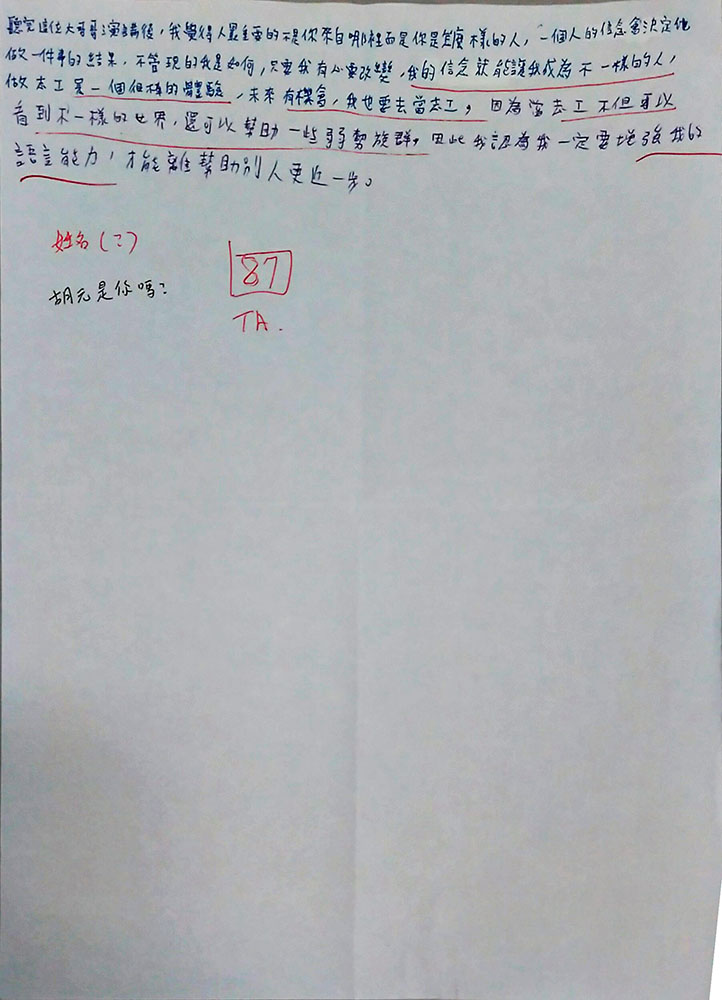 聽完這位大哥哥演講後，我覺得人最重要的不是你來自哪裡而是你是怎麼樣的人，一個人的信念會決定他
做一件事的結果，不管現的我是如何，只要我有心要改變，我的信念就能讓我成為不一樣的人，
做志工是一個很棒的體驗，未來有機會，我也要去當志工，因為當志工不但可以
看到不一樣的世界，還可以幫助一些弱勢族群，因此我認為我一定要增強我的
語言能力，才能離幫助別人更近一步。
姓名(?)
87
胡元是你嗎?
TA.